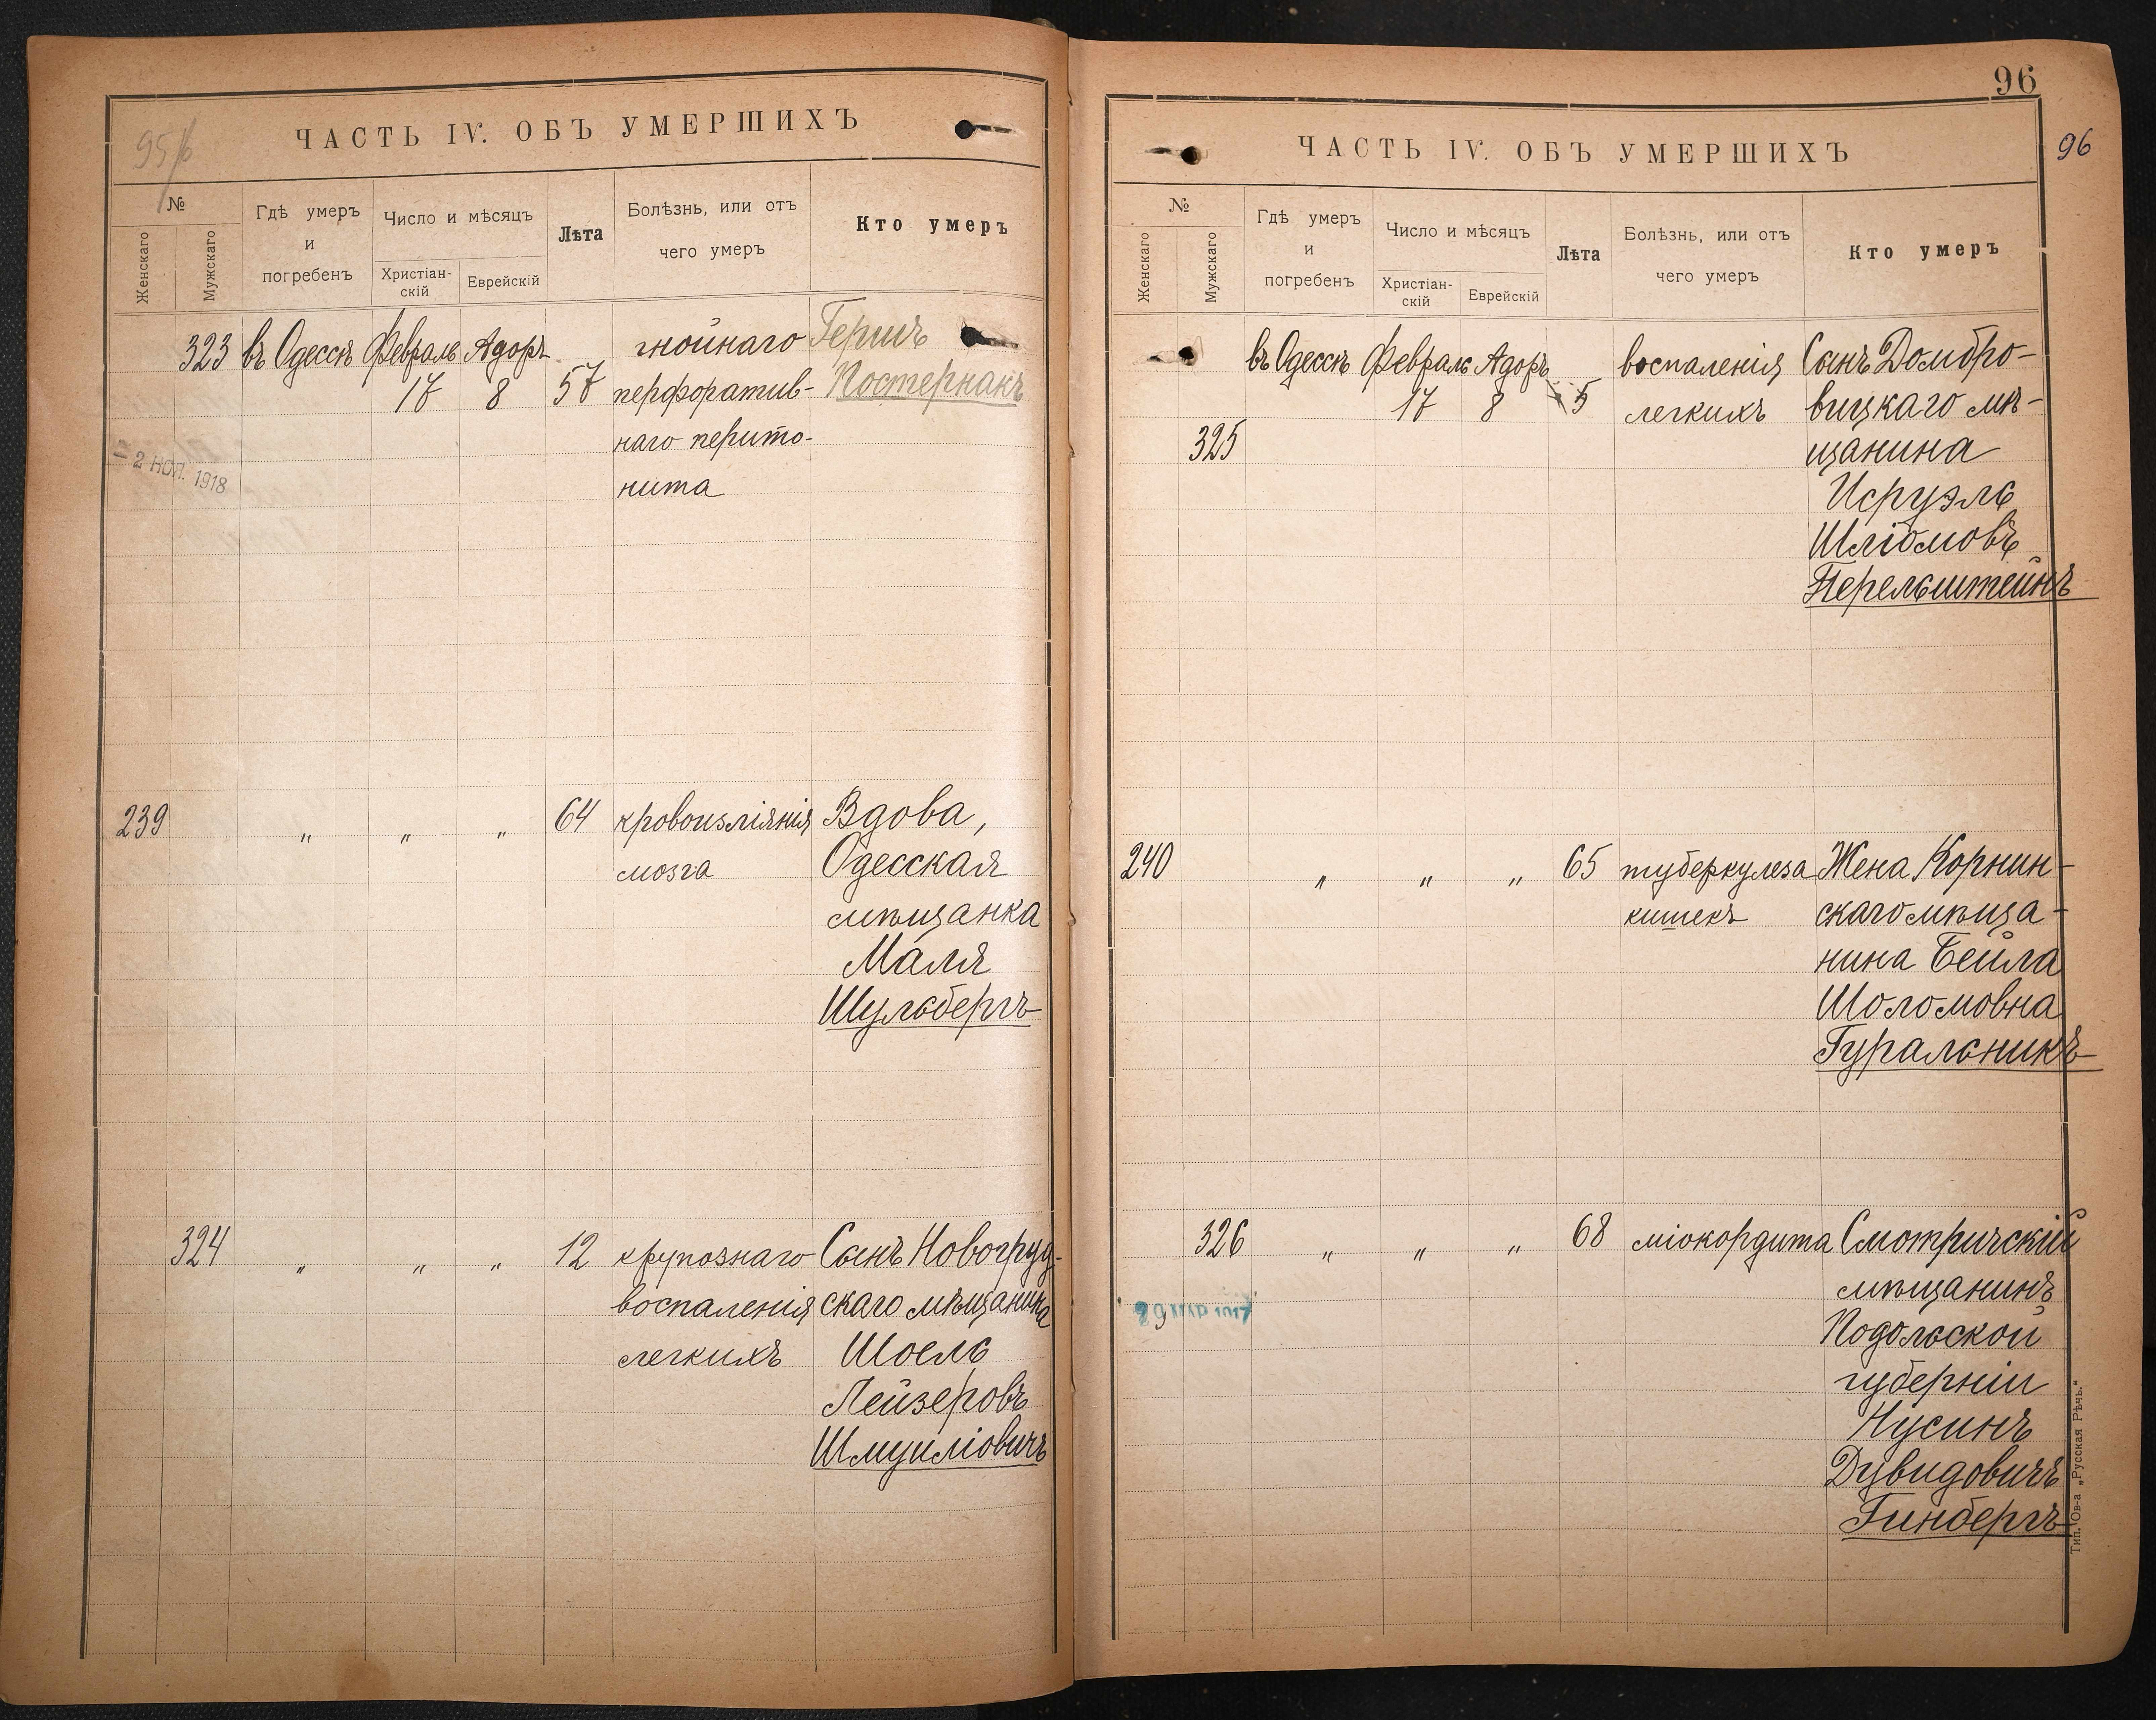 95/б
ЧАСТЬ IV. ОБЪ УМЕРШИХЪ
№
Женскаго
Мужскаго
Гдѣ умеръ
и
погребенъ
Число и мѣсяцъ
Христіан-
скій
Еврейскій
Лѣта
Болѣзнь, или отъ
чего умеръ
Кто умеръ
323 въ Одессѣ Февраль Адоръ гнойнаго Гершъ
17 8 57 перфоратив- Постернакъ
наго перито-
нита
2 НОЯ. 1918
239 " " " 64 кровоизліянія Вдова,
мозга Одесская
мѣщанка
Маля
Шульбергъ
324 " " " 12 крупознаго Сынъ Новогруд-
воспаленія скаго мѣщанина
легкихъ Шоель
Лейзеровъ
Шмуиловичъ
96
96
ЧАСТЬ IV. ОБЪ УМЕРШИХЪ
№
Женскаго
Мужскаго
Гдѣ умеръ
и
погребенъ
Число и мѣсяцъ
Христіан-
скій
Еврейскій
Лѣта
Болѣзнь, или отъ
чего умеръ
Кто умеръ
въ Одессѣ Февраль Адоръ воспаленія Сынъ Домбро-
17 8 5 легкихъ вицкаго мѣ-
325 щанина
Исруэль
Шліомовъ
Перельштейнъ
240 " " " 65 туберкулеза Жена Корнин-
кишекъ скаго мѣща-
нина Бейла
Шоломовна
Гуральникъ
326 " " " 68 міокордита Смотричскій
мѣщанинъ
Подольской
губерніи
Нусинъ
Дувидовичъ
Гинбергъ
Тип. Ов-а „Русская Рѣчь."